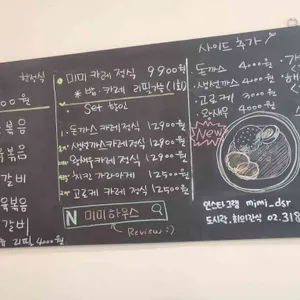 한정식
00원
볶음
육볶음
갈비
육볶음
갈비
리필 4000원
미미 카레 정식 9900원
* 밥·카레 리필가능(1회)
Set 할인
1. 돈까스 카레정식 12900원
생선까스카레정식 12900원
왕새우카레정식 12900원
치킨 가라아게 12500원
고로케 카레 정식 12500원
N 미미하우스
Review :)
사이드 추가
돈까스 4000원
생선까스 4000원
고로케 3000원
왕새우 4000원
New
인스타그램 mimi_dsr
도시락, 회의간식 02.318